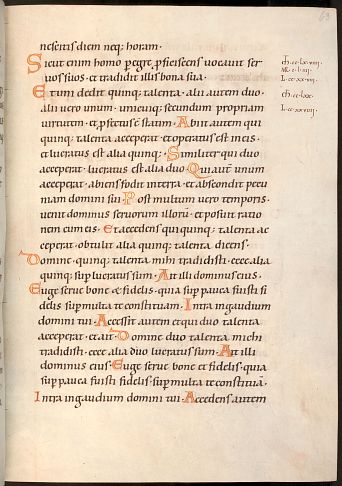 63
nescitis diem neq; horam.
Sicut enim homo peregre proficiscens vocavit ser
vos suos. et tradidit illis bona sua.
Et uni dedit quinq; talenta. alii autem duo.
alii vero unum. unicuiq; secundum propriam
virtutem. et profectus ē statim. Abiit autem qui
quinq; talenta acceperat. et operatus est in eis.
et lucratus est alia quinq;. Similiter qui duo
acceperat. lucratus est alia duo. Qui autē unum
acceperat. abiens fodit in terra. et abscondit pecu
niam domini sui. Post multum vero temporis.
venit dominus servorum illorū. et posuit ratio
nem cum eis. Et accedens qui quinq; talenta ac
ceperat. obtulit alia quinq; talenta dicens.
Domine. quinq; talenta mihi tradidisti. ecce alia
quinq; sup lucratus sum. Ait illi dominus eius.
Euge serve bone & fidelis. quia sup pauca fuisti fi
delis. sup multa te constituam. Intra in gaudium
domini tui. Accessit autem et qui duo talenta
acceperat. et ait. Domine duo talenta michi
tradidisti. ecce alia duo lucratus sum. Ait illi
dominus eius. Euge serve bone et fidelis. quia
sup pauca fuisti fidelis. sup multa te constituā.
Intra in gaudium domini tui. Accedens autem